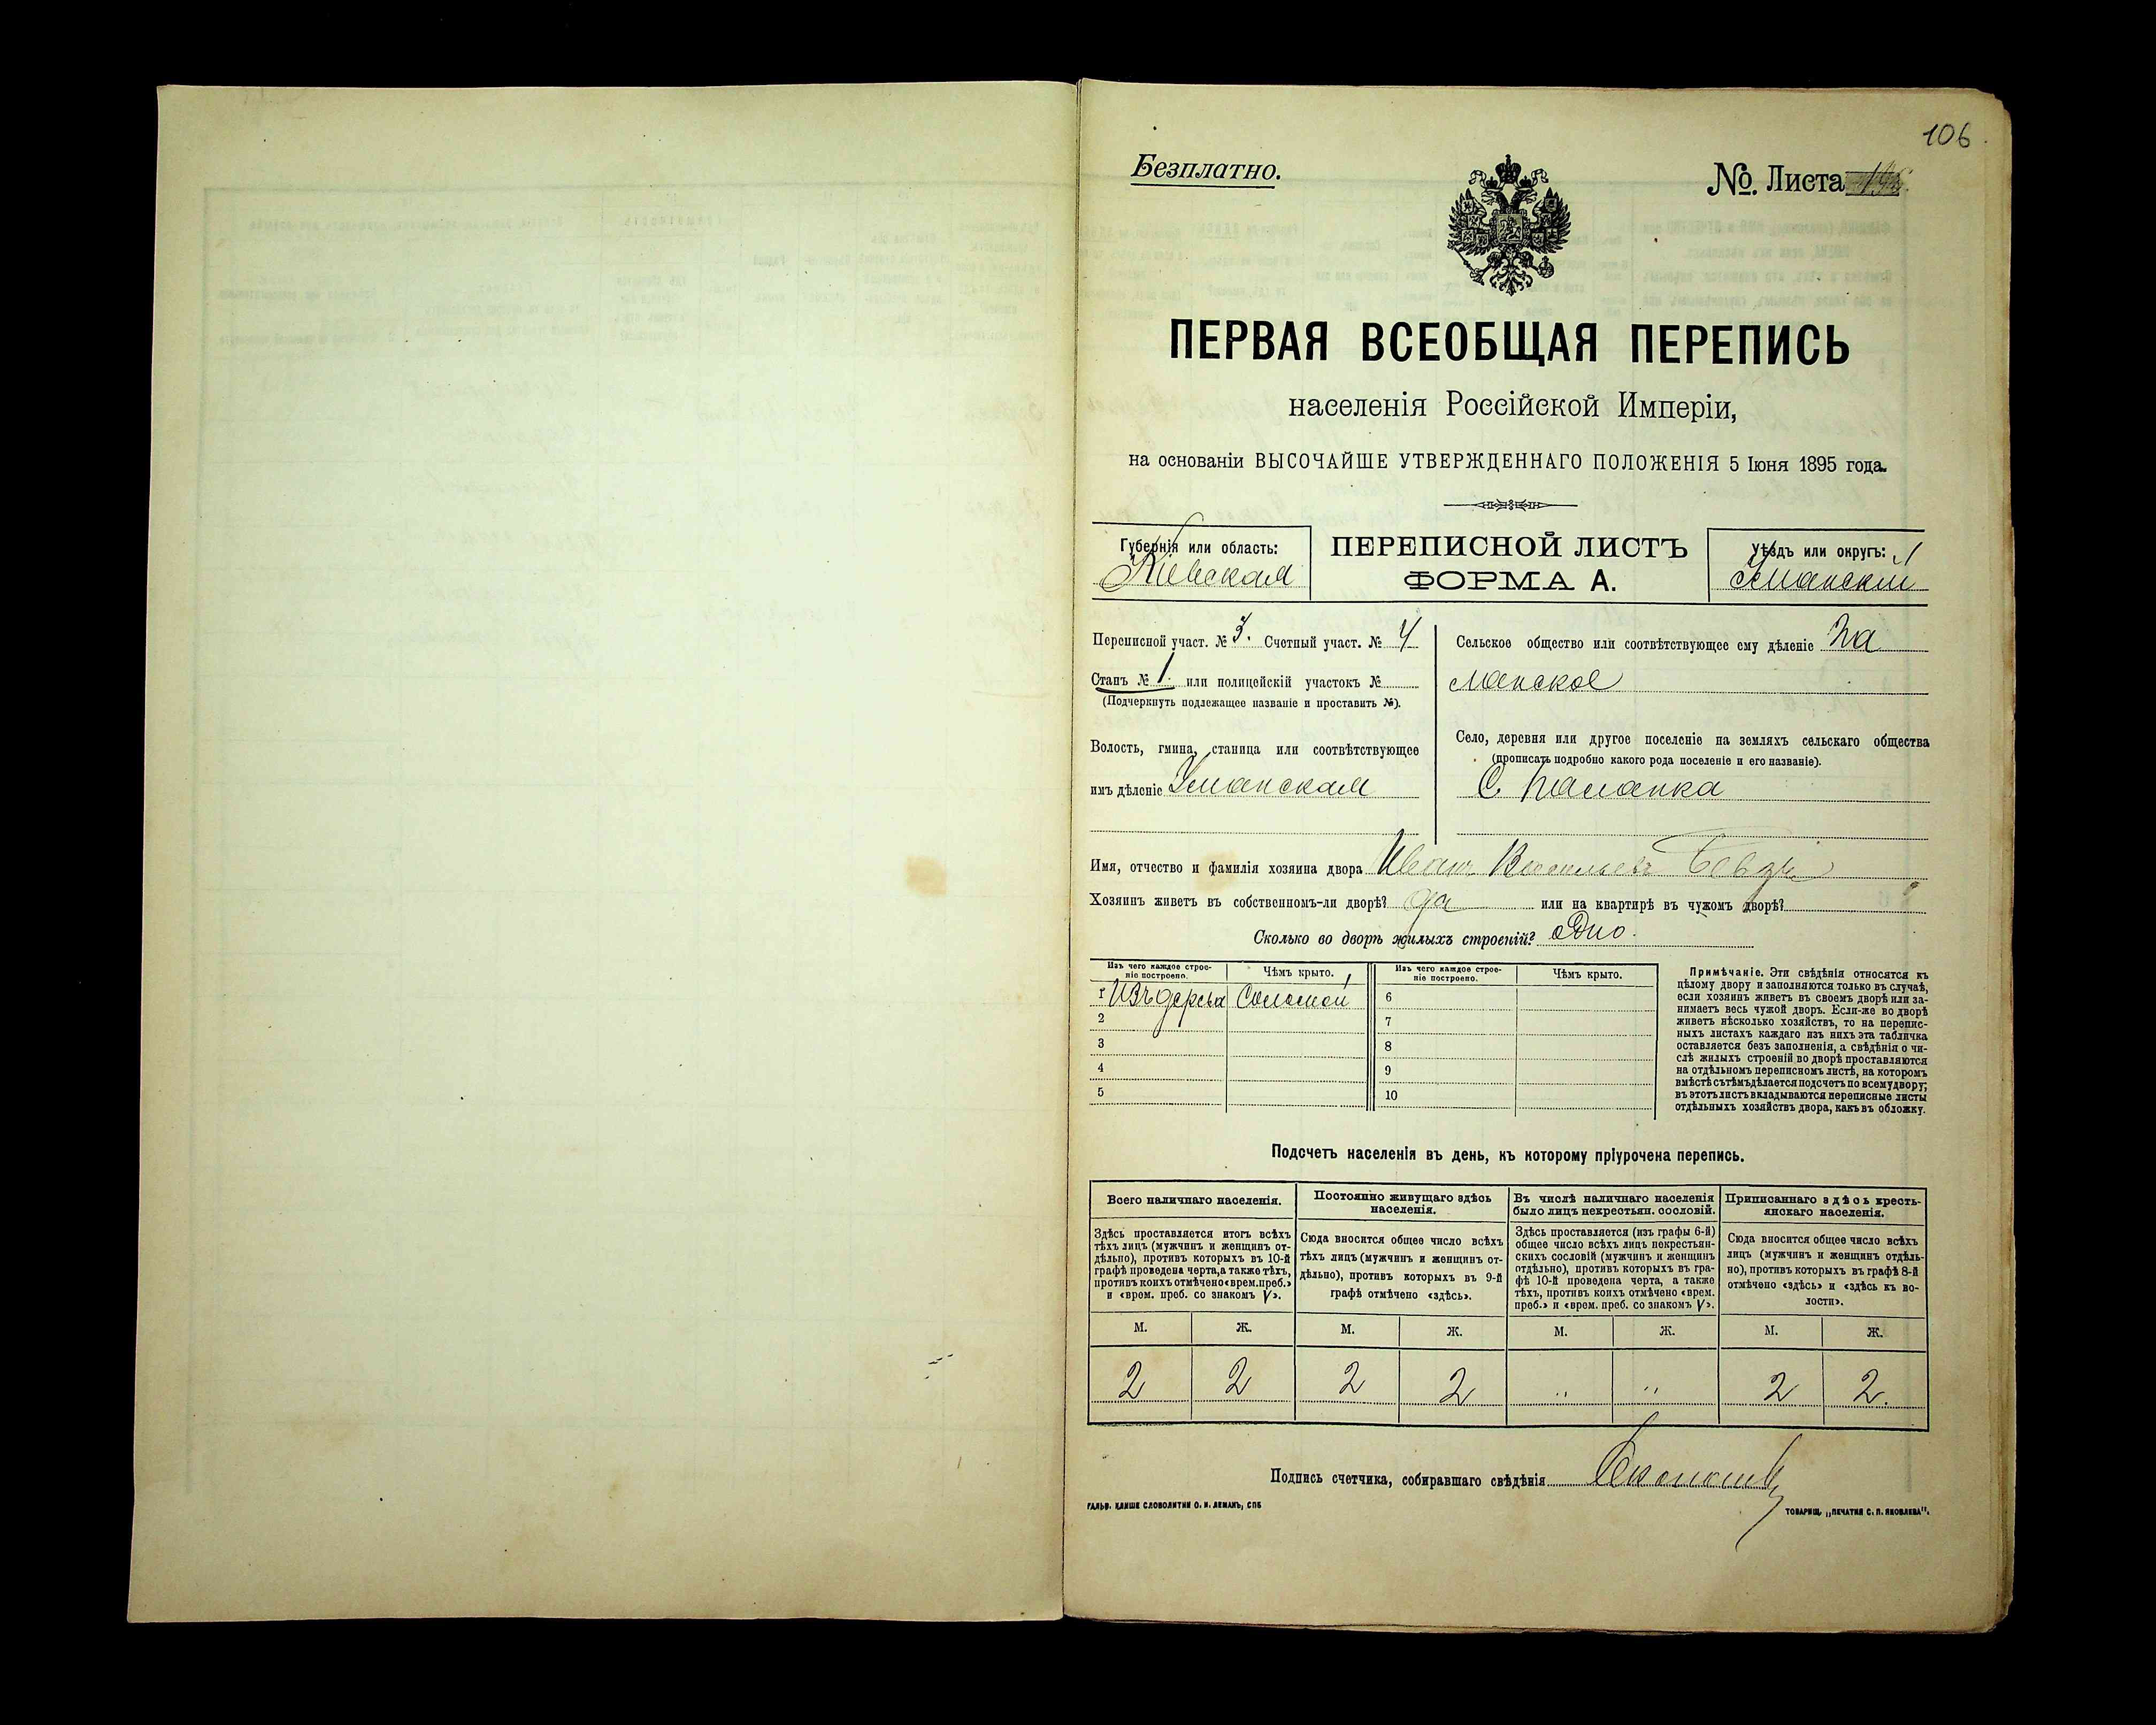 106
Безплатно.
№. Листа
ПЕРВАЯ ВСЕОБЩАЯ ПЕРЕПИСЬ
населенія Россійской Имперіи,
на основаніи ВЫСОЧАЙШЕ УТВЕРЖДЕННАГО ПОЛОЖЕНІЯ 5 Іюня 1895 года.
Губернія или область:
Кіевская
ПЕРЕПИСНОЙ ЛИСТЪ
ФОРМА А.
Уѣздъ или округъ:
Уманскій
Переписной участ. № 3. Счетный участ. № 4
Станъ № 1. или полицейскій участокъ №
(Подчеркнуть подлежащее названіе и проставить №).
Волость, гмина, станица или соотвѣтствующее
имъ дѣленіе Уманская
Сельское общество или соотвѣтствующее ему дѣленіе Па
ланское
Село, деревня или другое поселеніе на земляхъ сельскаго общества
(прописать подробно какого рода поселеніе и его названіе).
С. Паланка
Имя, отчество и фамилія хозяина двора Иванъ Васильевъ
Хозяинъ живетъ въ собственномъ-ли дворѣ? да или на квартирѣ въ чужомъ дворѣ?
Сколько во дворѣ жилыхъ строеній? Одно.
Изъ чего каждое строе-
ніе построено.
Чѣмъ крыто.
Изъ чего каждое строе-
ніе построено.
Чѣмъ крыто.
1 Изъ дерева Соломой 6
2 7
3 8
4 9
5 10
Примѣчаніе. Эти свѣдѣнія относятся къ
цѣлому двору и заполняются только въ случаѣ,
если хозяинъ живетъ въ своемъ дворѣ или за-
нимаетъ весь чужой дворъ. Если-же во дворѣ
живетъ нѣсколько хозяйствъ, то на перепис-
ныхъ листахъ каждаго изъ нихъ эта табличка
оставляется безъ заполненія, а свѣдѣнія о чи-
слѣ жилыхъ строеній во дворѣ проставляются
на отдѣльномъ переписномъ листѣ, на которомъ
вмѣстѣ съ тѣмъ дѣлается подсчетъ по всему двору;
въ этотъ листъ вкладываются переписные листы
отдѣльныхъ хозяйствъ двора, какъ въ обложку.
Подсчетъ населенія въ день, къ которому пріурочена перепись.
Всего наличнаго населенія.
Здѣсь проставляется итогъ всѣхъ
тѣхъ лицъ (мужчинъ и женщинъ от-
дѣльно), противъ которыхъ въ 10-й
графѣ проведена черта, а также тѣхъ,
противъ коихъ отмѣчено «врем. преб.»
и «врем. преб. со знакомъ V».
Постоянно живущаго здѣсь
населенія.
Сюда вносится общее число всѣхъ
тѣхъ лицъ (мужчинъ и женщинъ от-
дѣльно), противъ которыхъ въ 9-й
графѣ отмѣчено «здѣсь».
Въ числѣ наличнаго населенія
было лицъ некрестьян. сословій.
Здѣсь проставляется (изъ графы 6-й)
общее число всѣхъ лицъ некрестьян-
скихъ сословій (мужчинъ и женщинъ
отдѣльно), противъ которыхъ въ гра-
фѣ 10-й проведена черта, а также
тѣхъ, противъ коихъ отмѣчено «врем.
преб.» и «врем. преб. со знакомъ V».
Приписаннаго здѣсь кресть-
янскаго населенія.
Сюда вносится общее число всѣхъ
лицъ (мужчинъ и женщинъ отдѣль-
но), противъ которыхъ въ графѣ 8-й
отмѣчено «здѣсь» и «здѣсь къ во-
лости».
М. Ж. М. Ж. М. Ж. М. Ж.
2 2 2 2 " " 2 2.
Подпись счетчика, собиравшаго свѣдѣнія
ГАЛЬВ. КЛИШЕ СЛОВОЛИТНИ О. И. ЛЕМАНЪ, СПБ
ТОВАРИЩ. „ПЕЧАТНЯ С. П. ЯКОВЛЕВА".